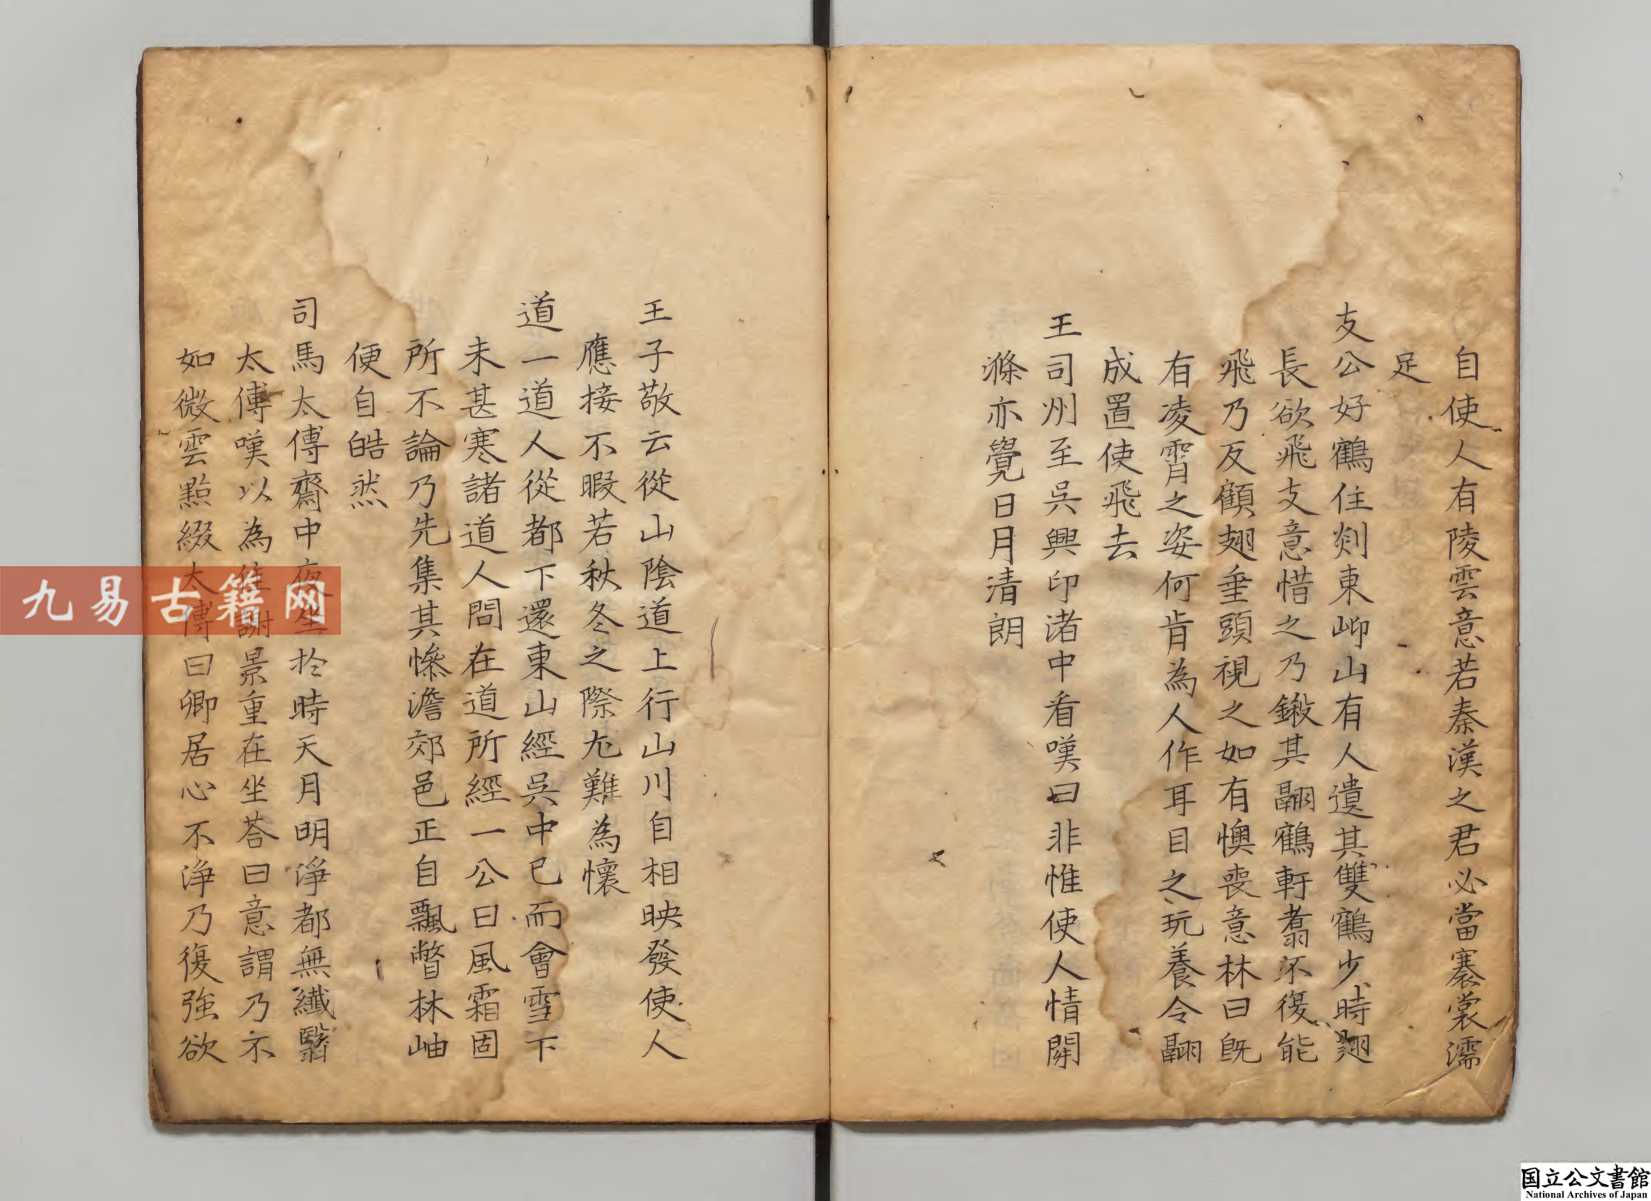 自使人有陵雲意若秦漢之君必當褰裳濡
足
支公好鶴住剡東岇山有人遺其雙鶴少時翅
長欲飛支意惜之乃鎩其翮鶴軒翥不復能
飛乃反顧翅垂頭視之如有懊喪意林曰既
有凌霄之姿何肯為人作耳目之玩養令翮
成置使飛去
王司州至吳興印渚中看嘆曰非惟使人情開
滌亦覺日月清朗
王子敬云從山陰道上行山川自相映發使人
應接不暇若秋冬之際尤難為懷
道一道人從都下還東山經吳中已而會雪下
未甚寒諸道人問在道所經一公曰風霜固
所不論乃先集其慘澹郊邑正自飄瞥林岫
便自皓然
司馬太傅齋中夜坐於時天月明淨都無纖翳
太傅嘆以為佳謝景重在坐荅曰意謂乃不
如微雲點綴太傅曰卿居心不淨乃復強欲
九易古籍网
国立公文書館
National Archives of Japan